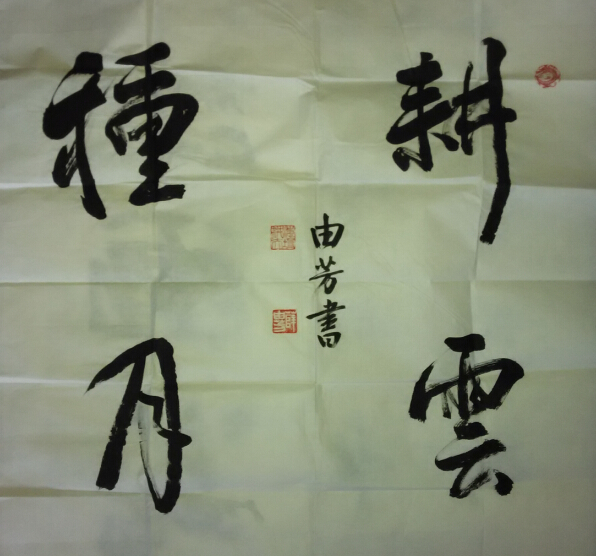 耕雲
種月
由芳書